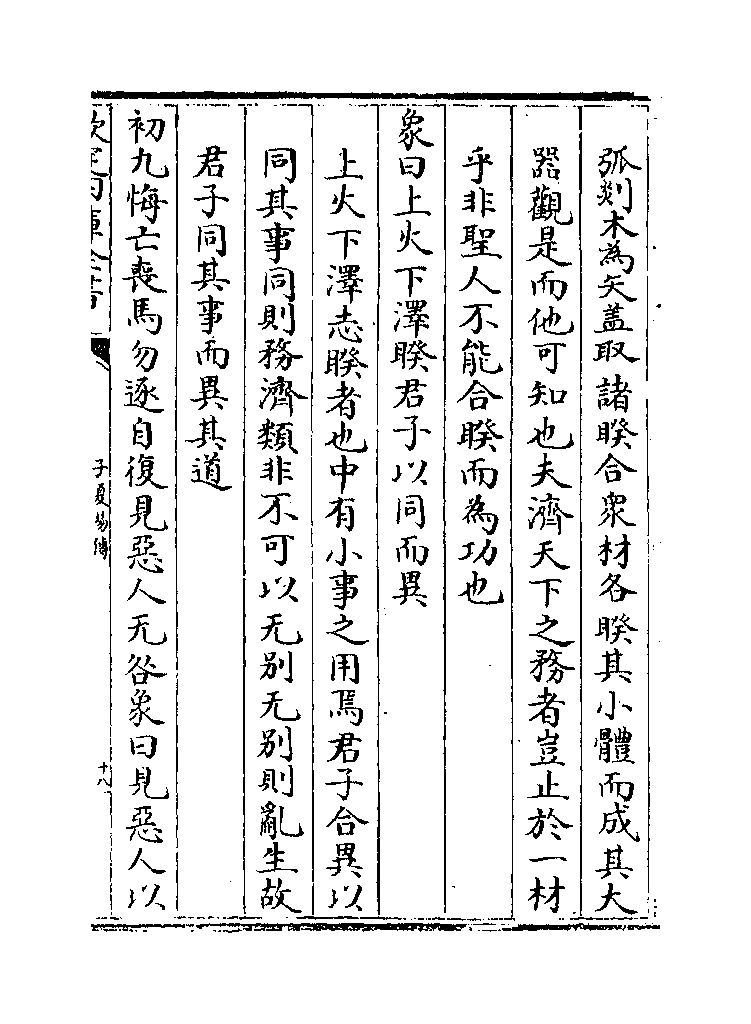 弧剡木為矢盖取諸睽合衆材各睽其小體而成其大
器觀是而他可知也夫濟天下之務者豈止於一材
乎非聖人不能合睽而為功也
象曰上火下澤睽君子以同而異
上火下澤志睽者也中有小事之用焉君子合異以
同其事同則務濟類非不可以无别无别則亂生故
君子同其事而異其道
初九悔亡喪馬勿逐自復見惡人无咎象曰見惡人以
子夏易傳
十八